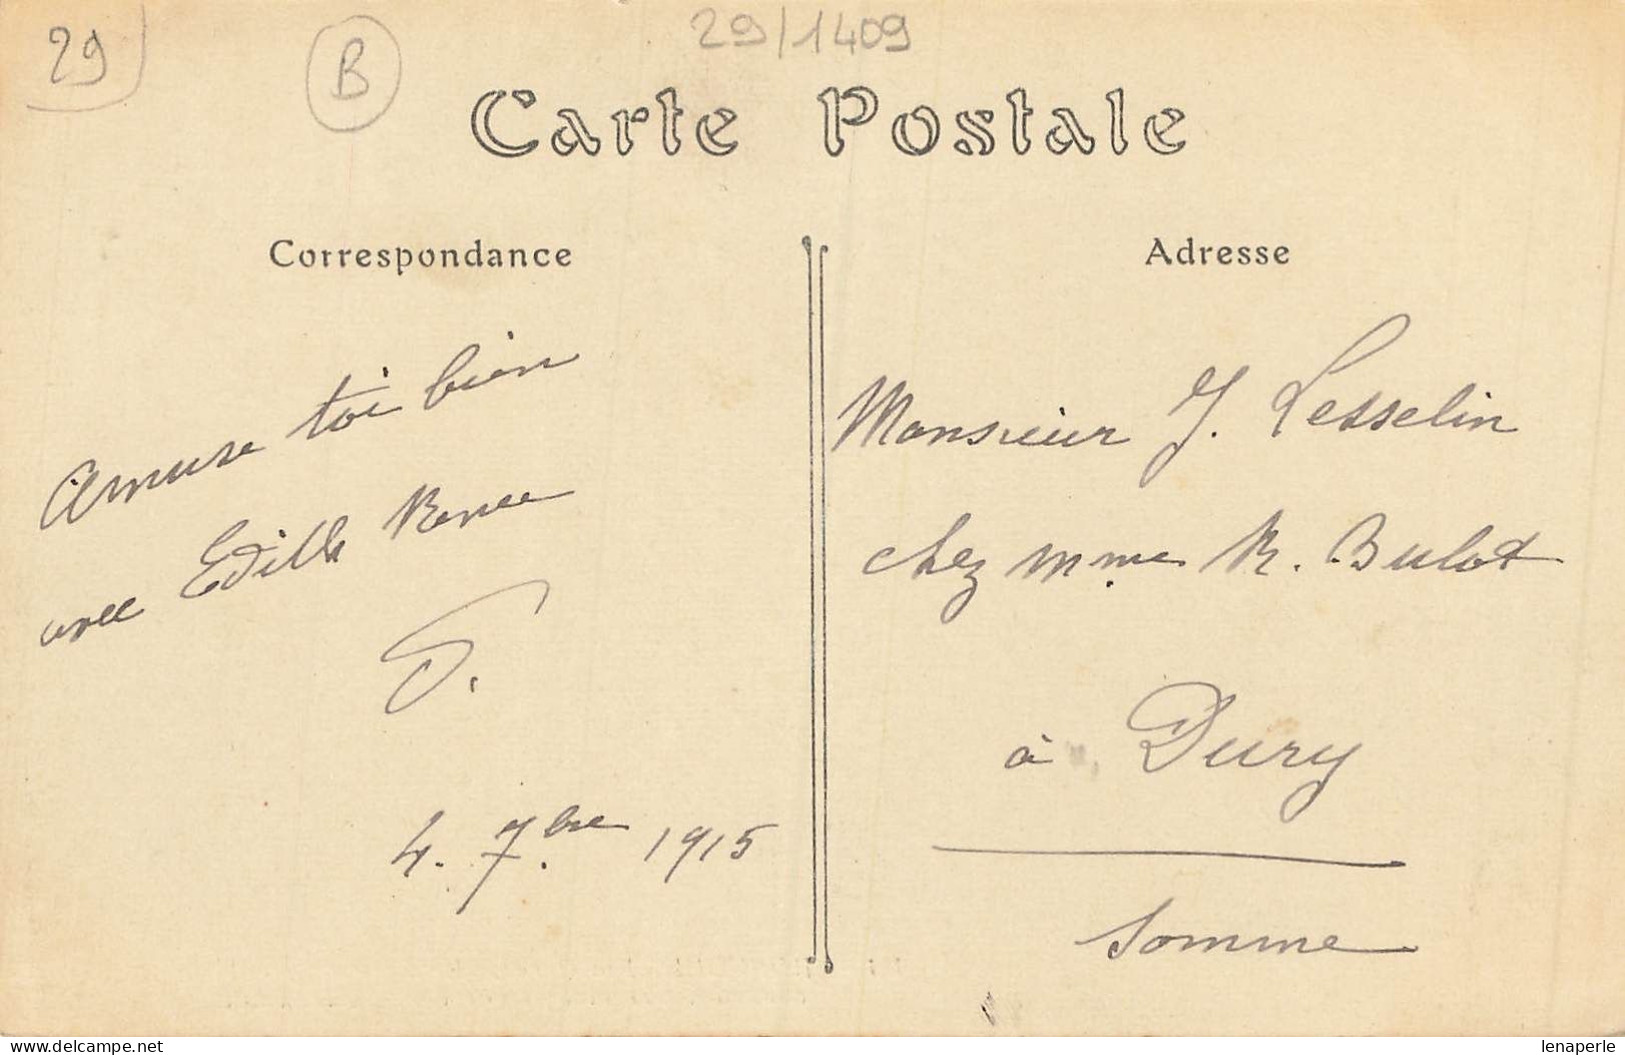 29
B
29/1409
Carte Postale
Correspondance
Adresse
Amuse toi bien
avec Edith Renee
4. 7bre 1915
Monsieur J. Lesselin
chez Mme R. Bulot
à Dury
Somme
delcampe.net
lenaperle